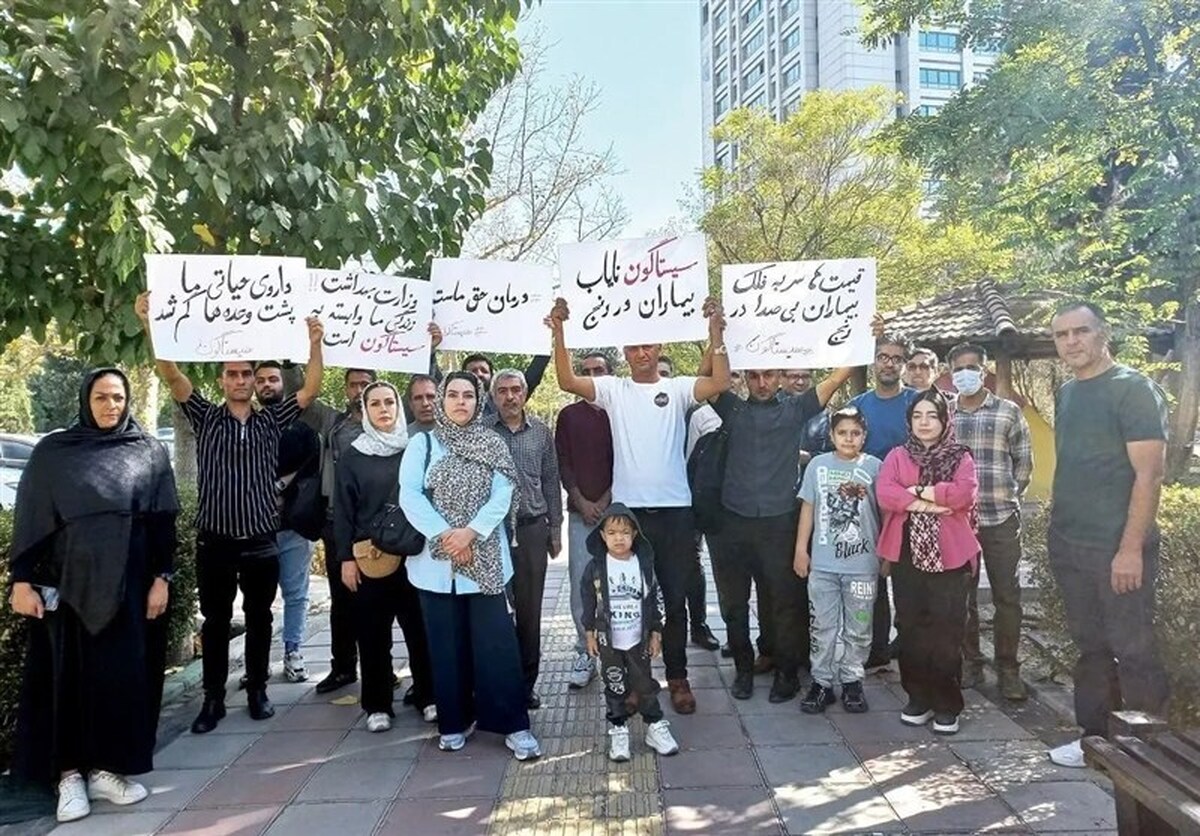 داروی حیاتی ما
پشت وعده ها گم شد
سیستاگون
وزارت بهداشت !!
زندگی ما وابسته به
سیستاگون است
درمان حق ماست
سیستاگون
سیستاگون نایاب
بیماران در رنج
قیمت ها سر به فلک
بیماران بی صدا در
رنج
سیستاگون
KING
Black
REINT